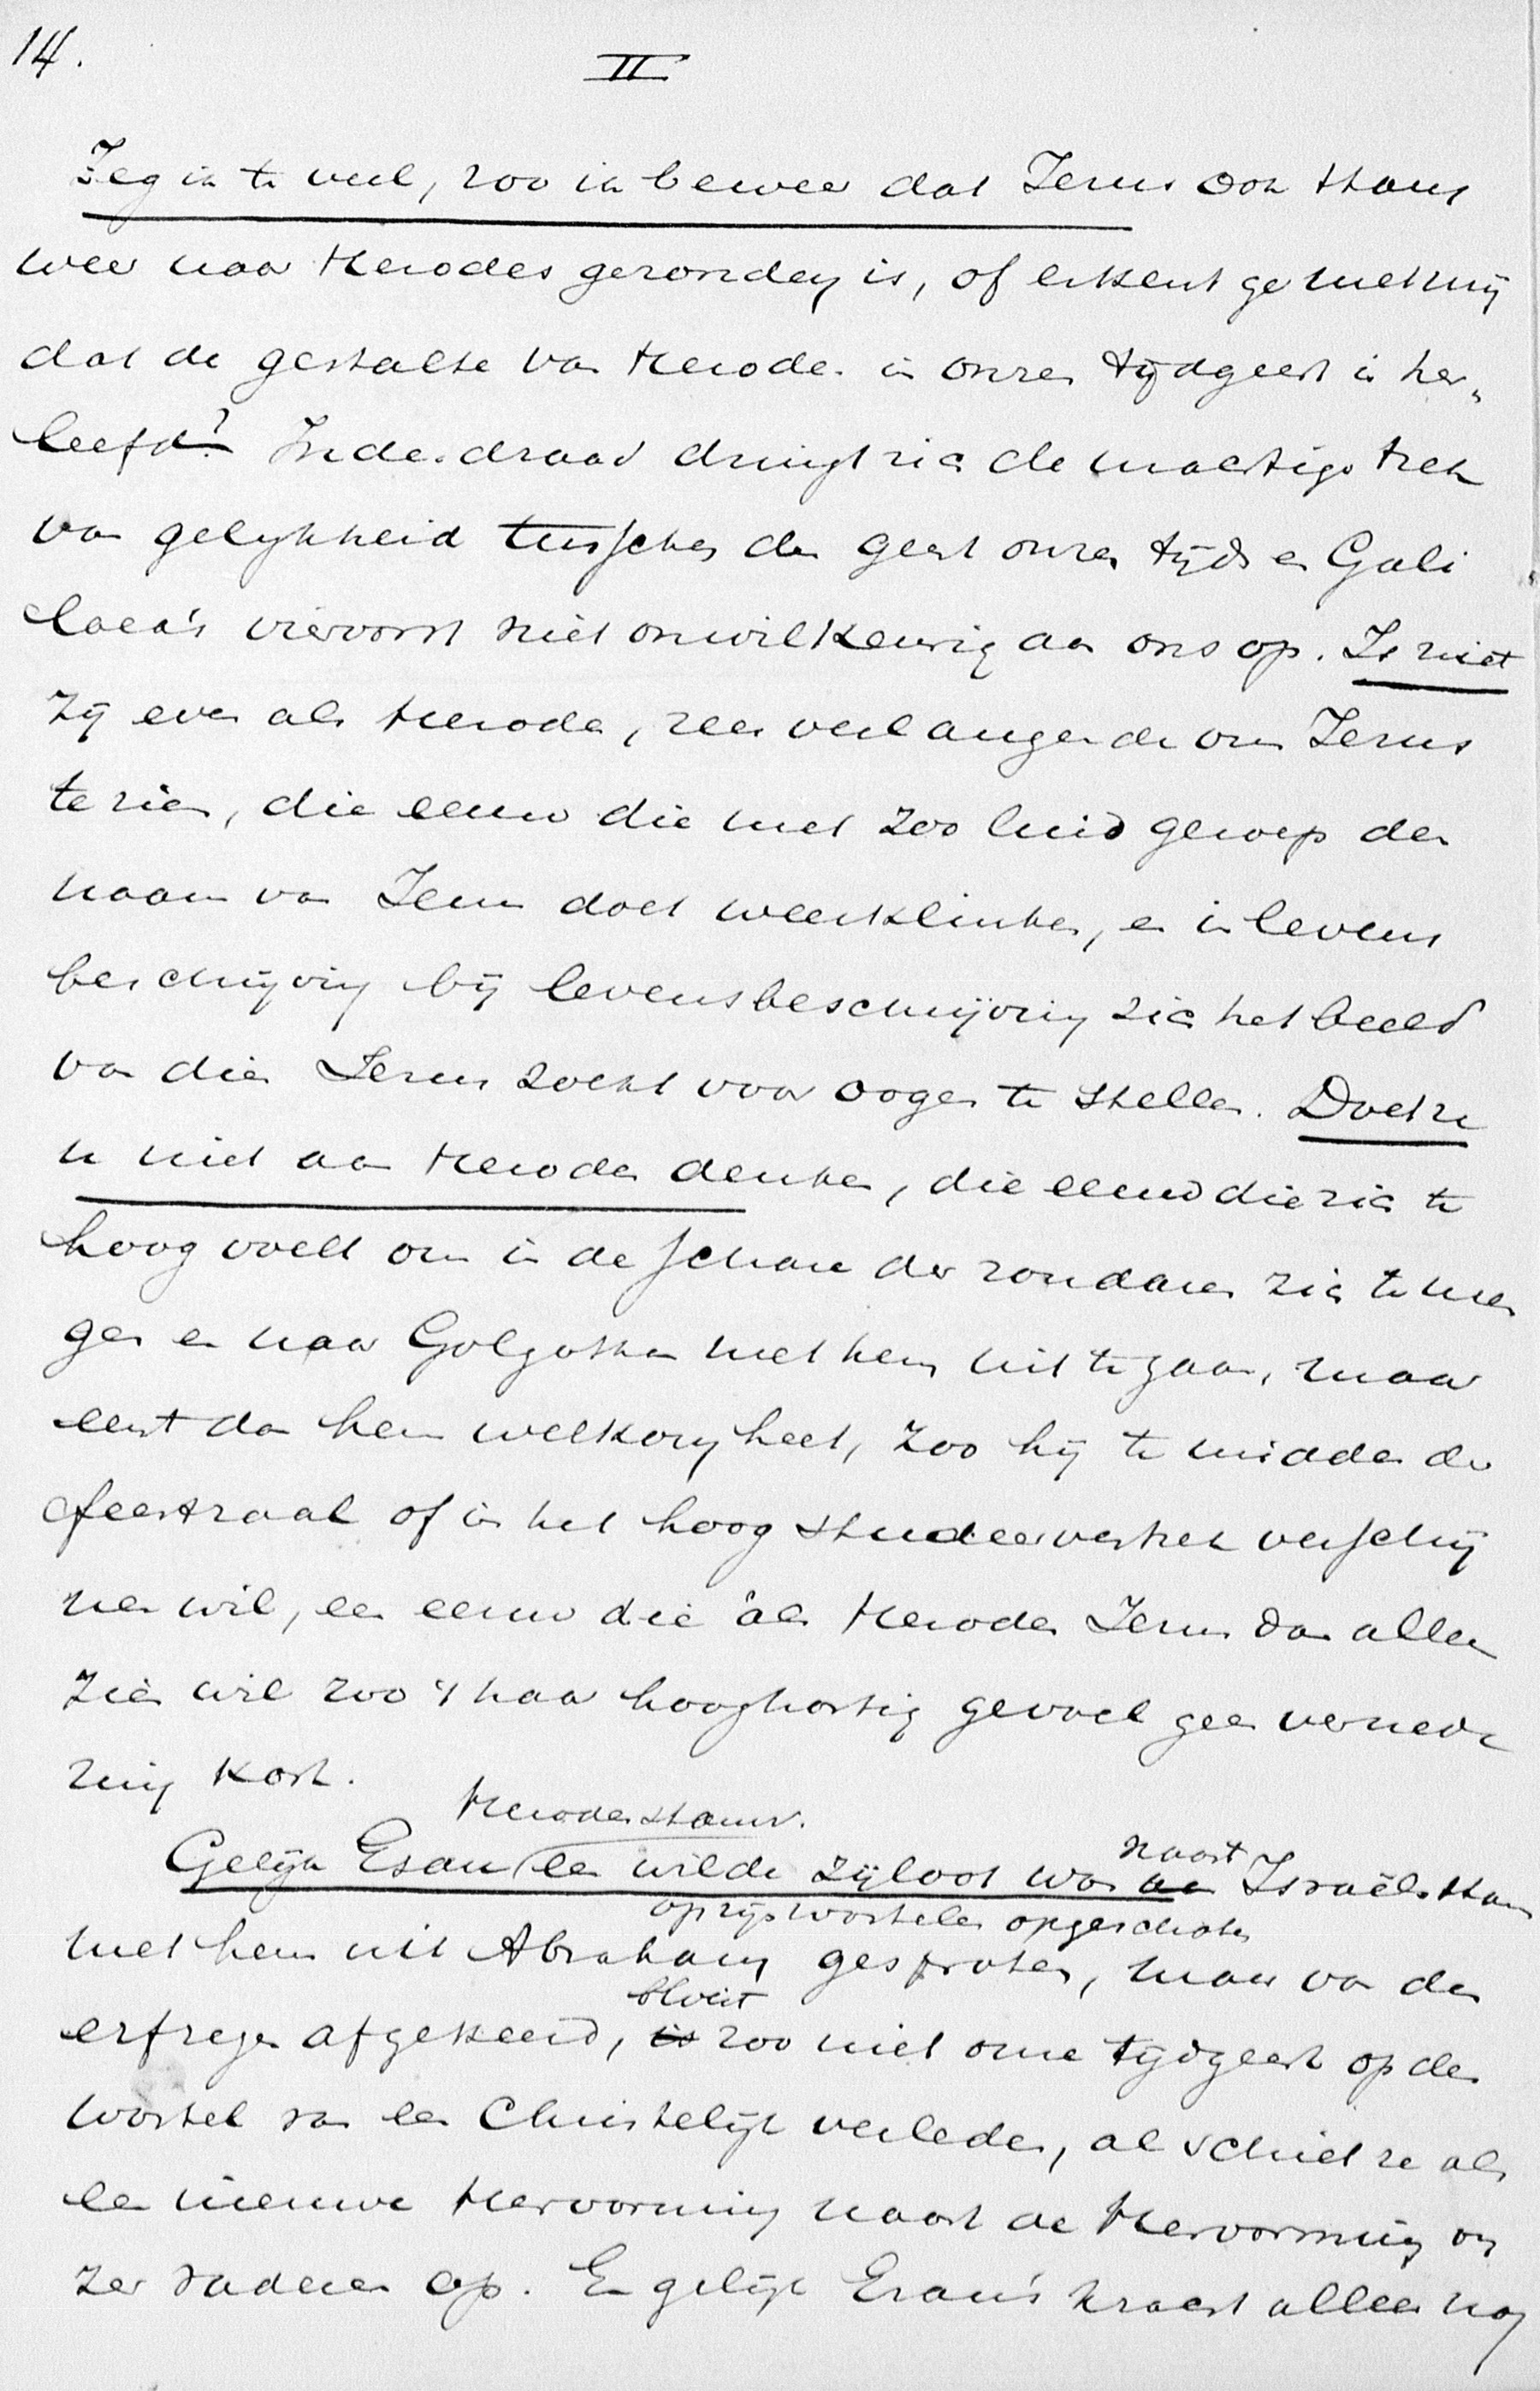 14.
II
Zeg ik te veel, zoo ik beweer dat Jezus ook thans
weer naar Herodes gezonden is, of erkent ge met mij
dat de gestalte van Herodes in onzen tijdgeest is her„
leefd? Inderdraad dringt zich de machtige trek
van gelijkheid tusschen den geest onzes tijds en Gali
laea's viervorst niet onwilkeurig aan ons op. Is niet
zij even als Herodes, zeer verlangende om Jezus
te zien, die eeuw die met zoo luid geroep den
naam van Jezus doet weerklinken, en in levens
beschrijving bij levensbeschrijving zich het beeld
van dien Jezus zoekt voor oogen te stellen. Doet ze
u niet aan Herodes denken, die eeuw die zich te
hoog voelt om in de schare der zondaren zich te men
gen en naar Golgotha met hem uit te gaan, maar
eerst dan hem welkom heet, zoo hij te midden der
feestzaal of in het hoog studeervertrek verschij
nen wil, een eeuw die als Herodes Jezus dan alleen
zien wil zoo 't haar hooghartig gevoel geen vernede
ring kost.
Herodes stamv.
Gelijk Esau een wilde zijloot was aan naast Israëls stam
op zijn wortelen opgeschoten
met hem uit Abraham gesproten, maar van den
bloeit
erfzegen afgekeerd, is zoo niet onze tijdgeest op den
wortel van een Christelijk verleden, al schiet ze als
een nieuwe Hervorming naast de Hervorming on
zer vaderen op. En gelijk Ezau's kracht alleen nog